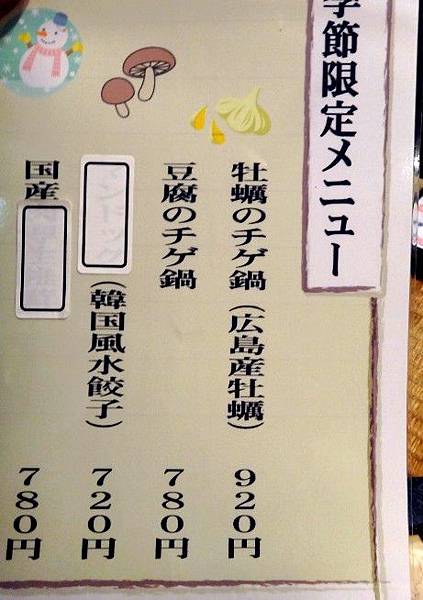 季節限定メニュー
牡蠣のチゲ鍋（広島産牡蠣） 920円
豆腐のチゲ鍋 780円
（韓国風水餃子） 720円
国産 780円